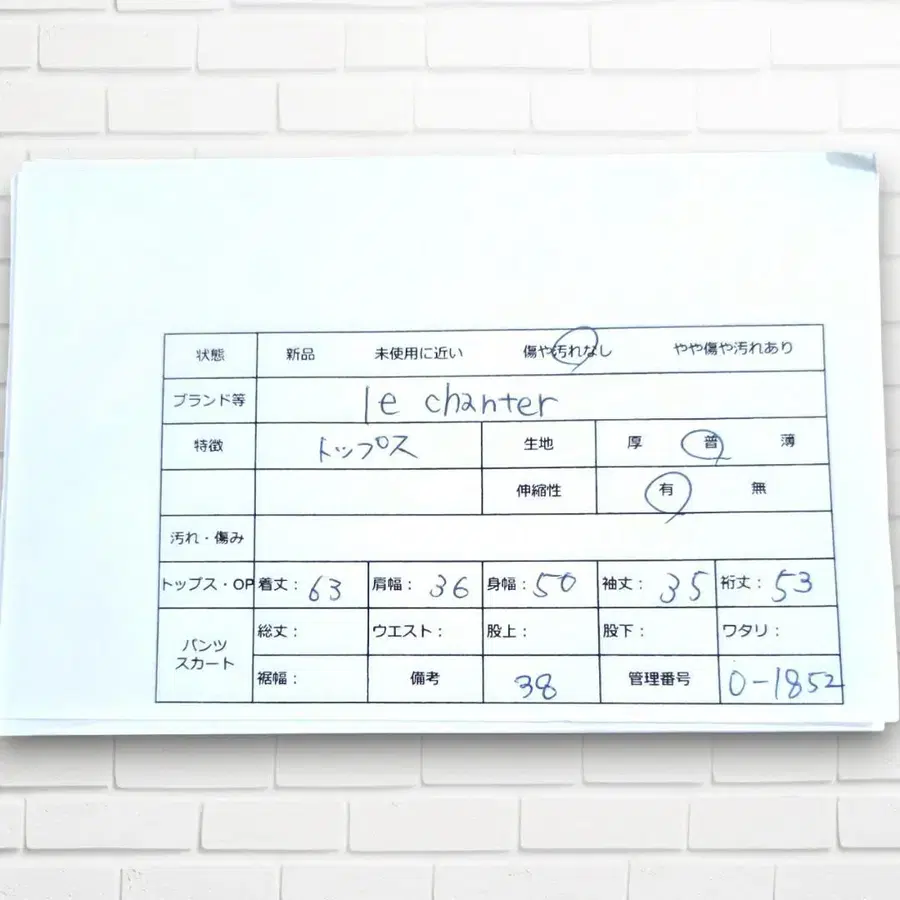 状態 新品 未使用に近い 傷や汚れなし やや傷や汚れあり
ブランド等 le chanter
特徴 トップス 生地 厚 普 薄
伸縮性 有 無
汚れ・傷み
トップス・OP 着丈：63 肩幅：36 身幅：50 袖丈：35 裄丈：53
パンツ 総丈： ウエスト： 股上： 股下： ワタリ：
スカート 裾幅： 備考 38 管理番号 0-1852